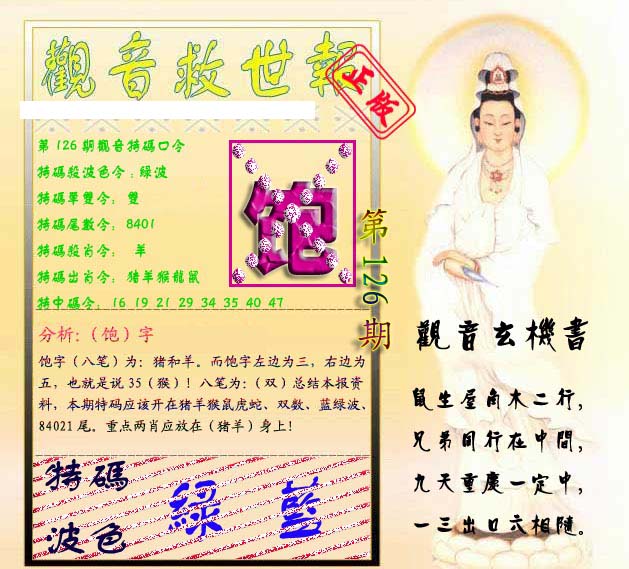 觀音救世報
正版
第126期觀音特碼口令
特碼殺波色令:綠波
特碼單雙令: 雙
特碼尾數令: 8401
特碼殺肖令: 羊
特碼出肖令: 猪羊猴龍鼠
特中碼令: 16 19 21 29 34 35 40 47
饱
第126期
分析:(饱)字
饱字(八笔)为:猪和羊。而饱字左边为三,右边为
五,也就是说35(猴)!八笔为:(双)总结本报资
料,本期特码应该开在猪羊猴鼠虎蛇、双数、蓝绿波、
84021尾。重点两肖应放在(猪羊)身上!
特碼
波色
綠 藍
觀音玄機書
鼠生屋角木二行,
兄弟同行在中間,
九天重慶一定中,
一三出口六相隨。